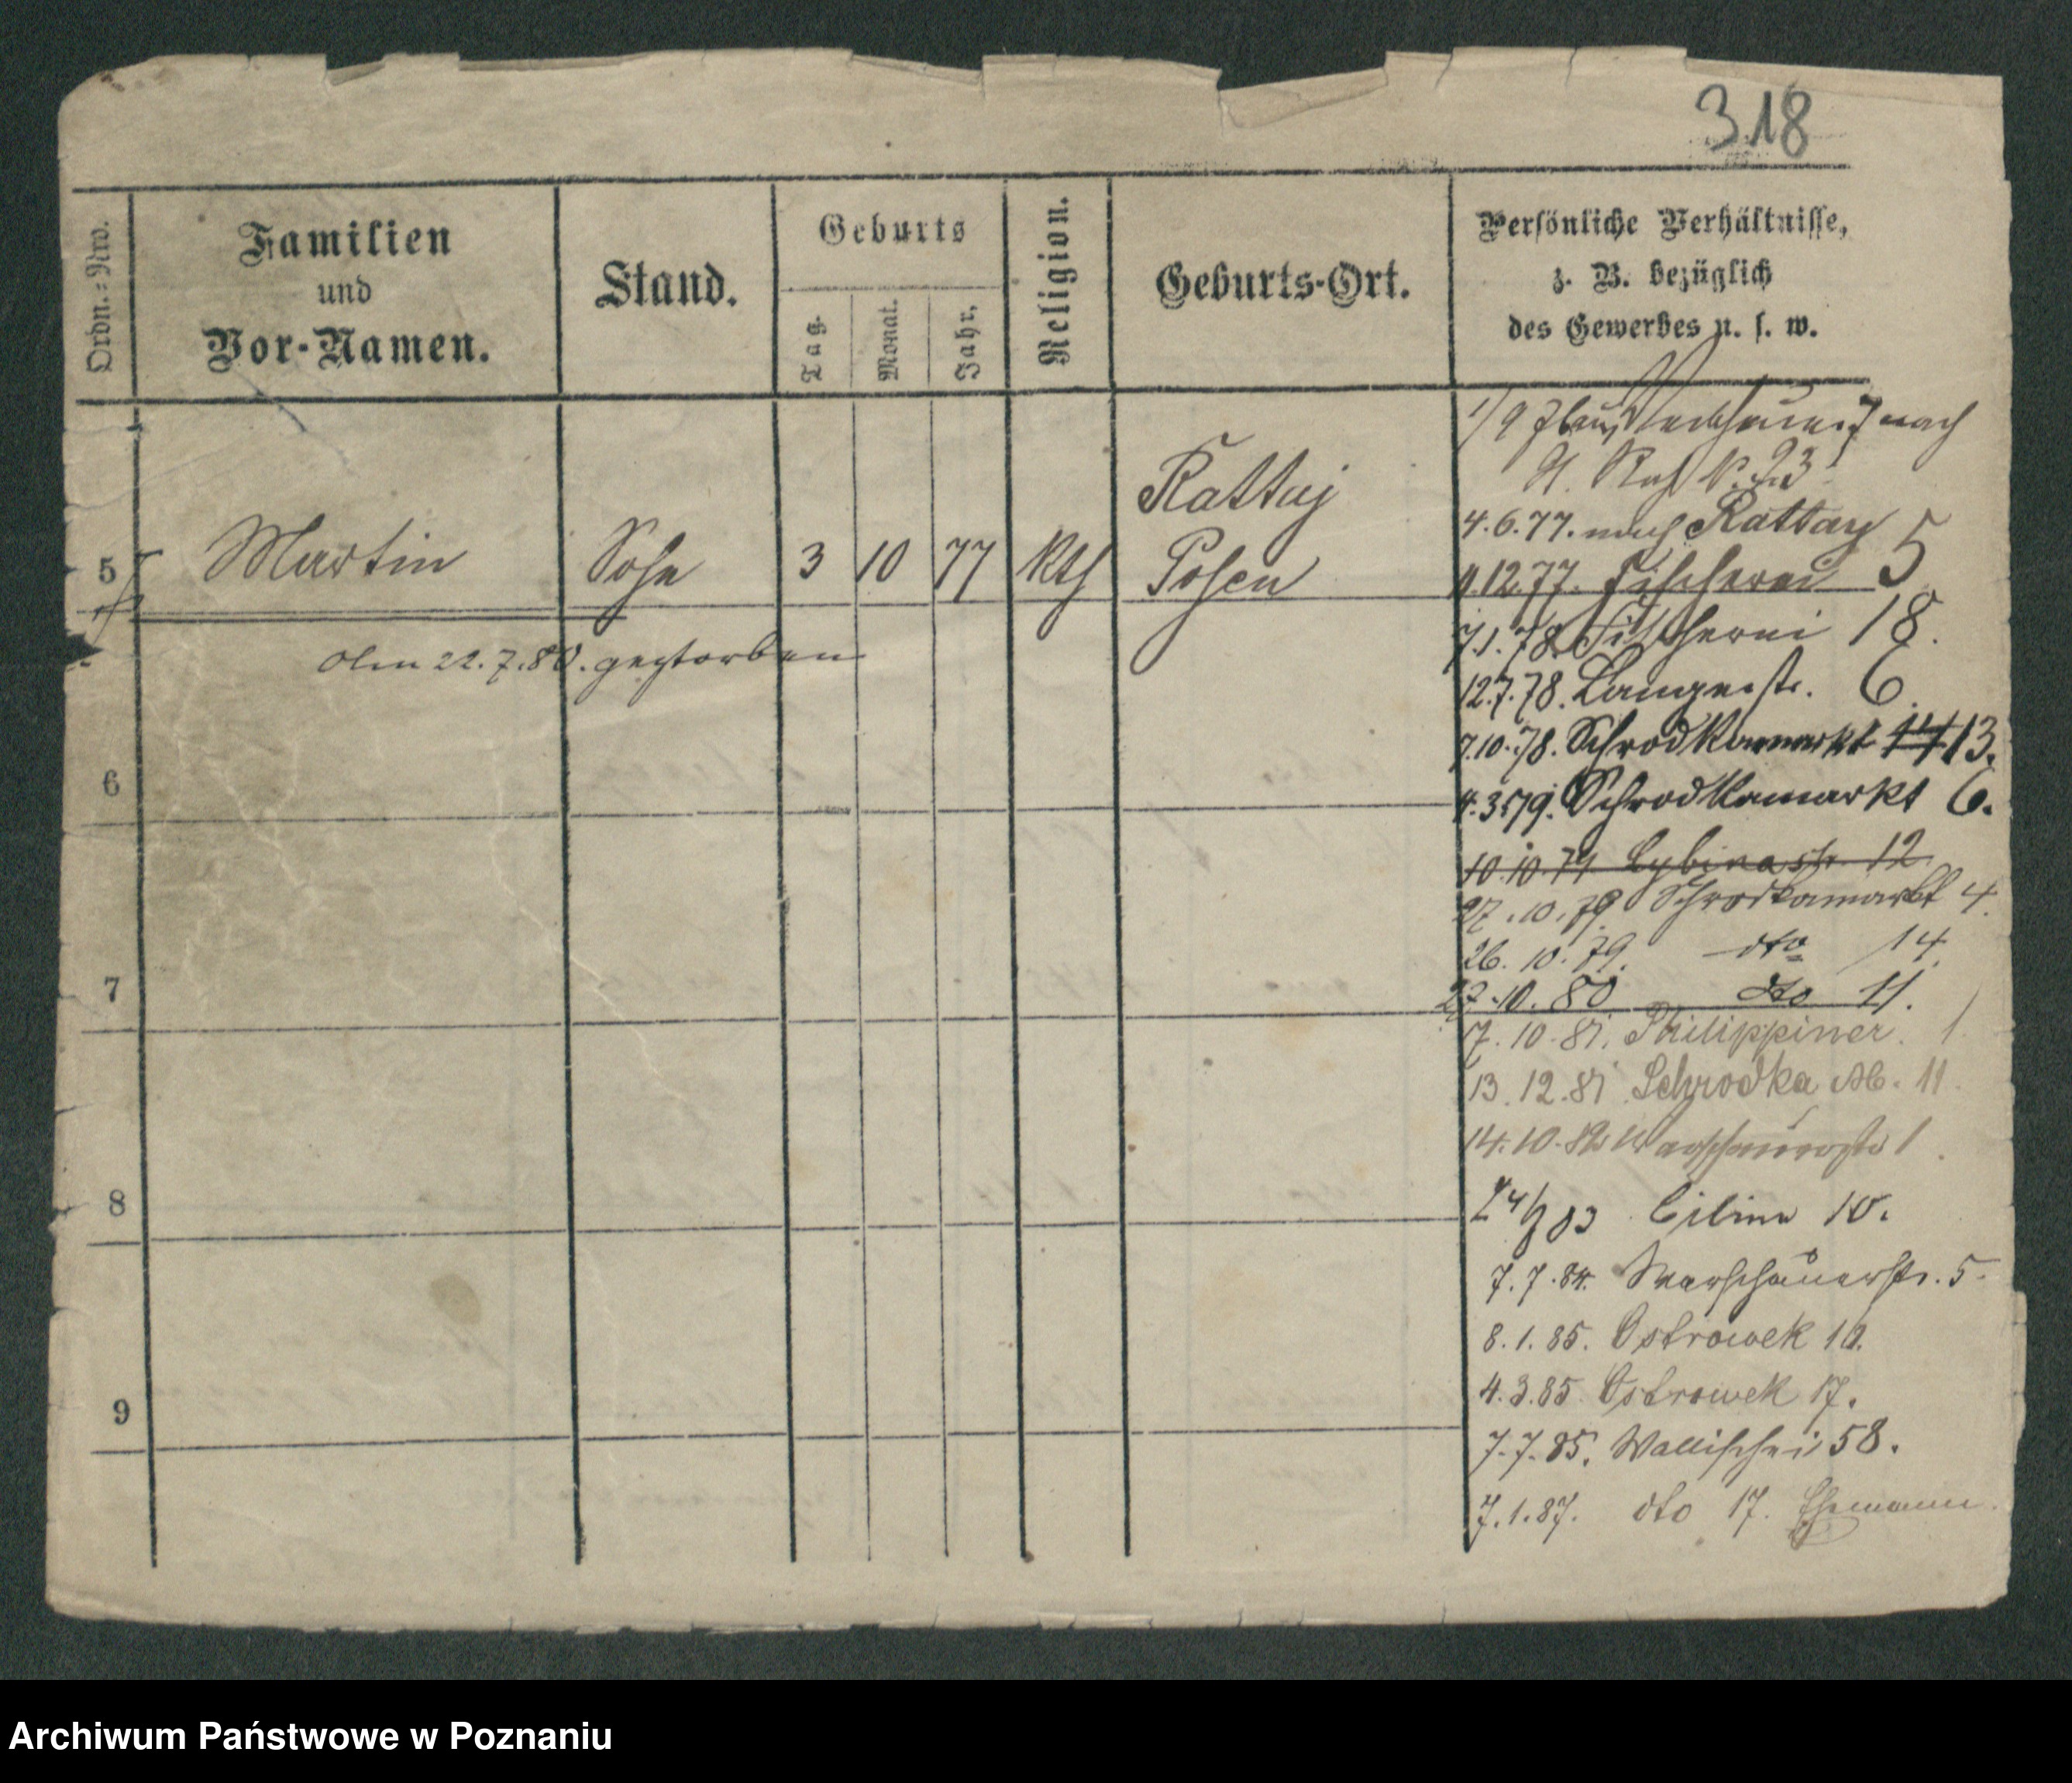 318
Ordn.-Nro.
Familien
und
Vor-Namen.
Stand.
Geburts
Tag.
Monat.
Jahr.
Religion.
Geburts-Ort.
Persönliche Verhältnisse,
z. B. bezüglich
des Gewerbes u. s. w.
nach
23
Kattaj
4.6.77. nach Rattay
5 Martin Sohn 3 10 77 Kth Posen
12.77. Fischerei 5
7.1.78. Fischerei 18.
Am 22.7.80. gestorben
12.7.78. Langestr. 6.
7.10.78. Schrodkamarkt 14 13.
4.3.79. Schrodkamarkt 6.
6
10.10.79 Cybinastr. 12
27.10.79 Schrodkamarkt 4.
26.10.79. dto 14.
7
27.10.80 dto 11.
17.10.81. Philippiner. 1
13.12.81 Schrodka M. 11.
14.10.82 Warschauerstr 1.
8
83 Cibina 10.
7.7.84. Warschauerstr. 5.
8.1.85. Ostrowek 10.
4.3.85. Ostrowek 17.
9
7.7.85. Wallischei 58.
7.1.87. dto 17. Ehemann.
Archiwum Państwowe w Poznaniu